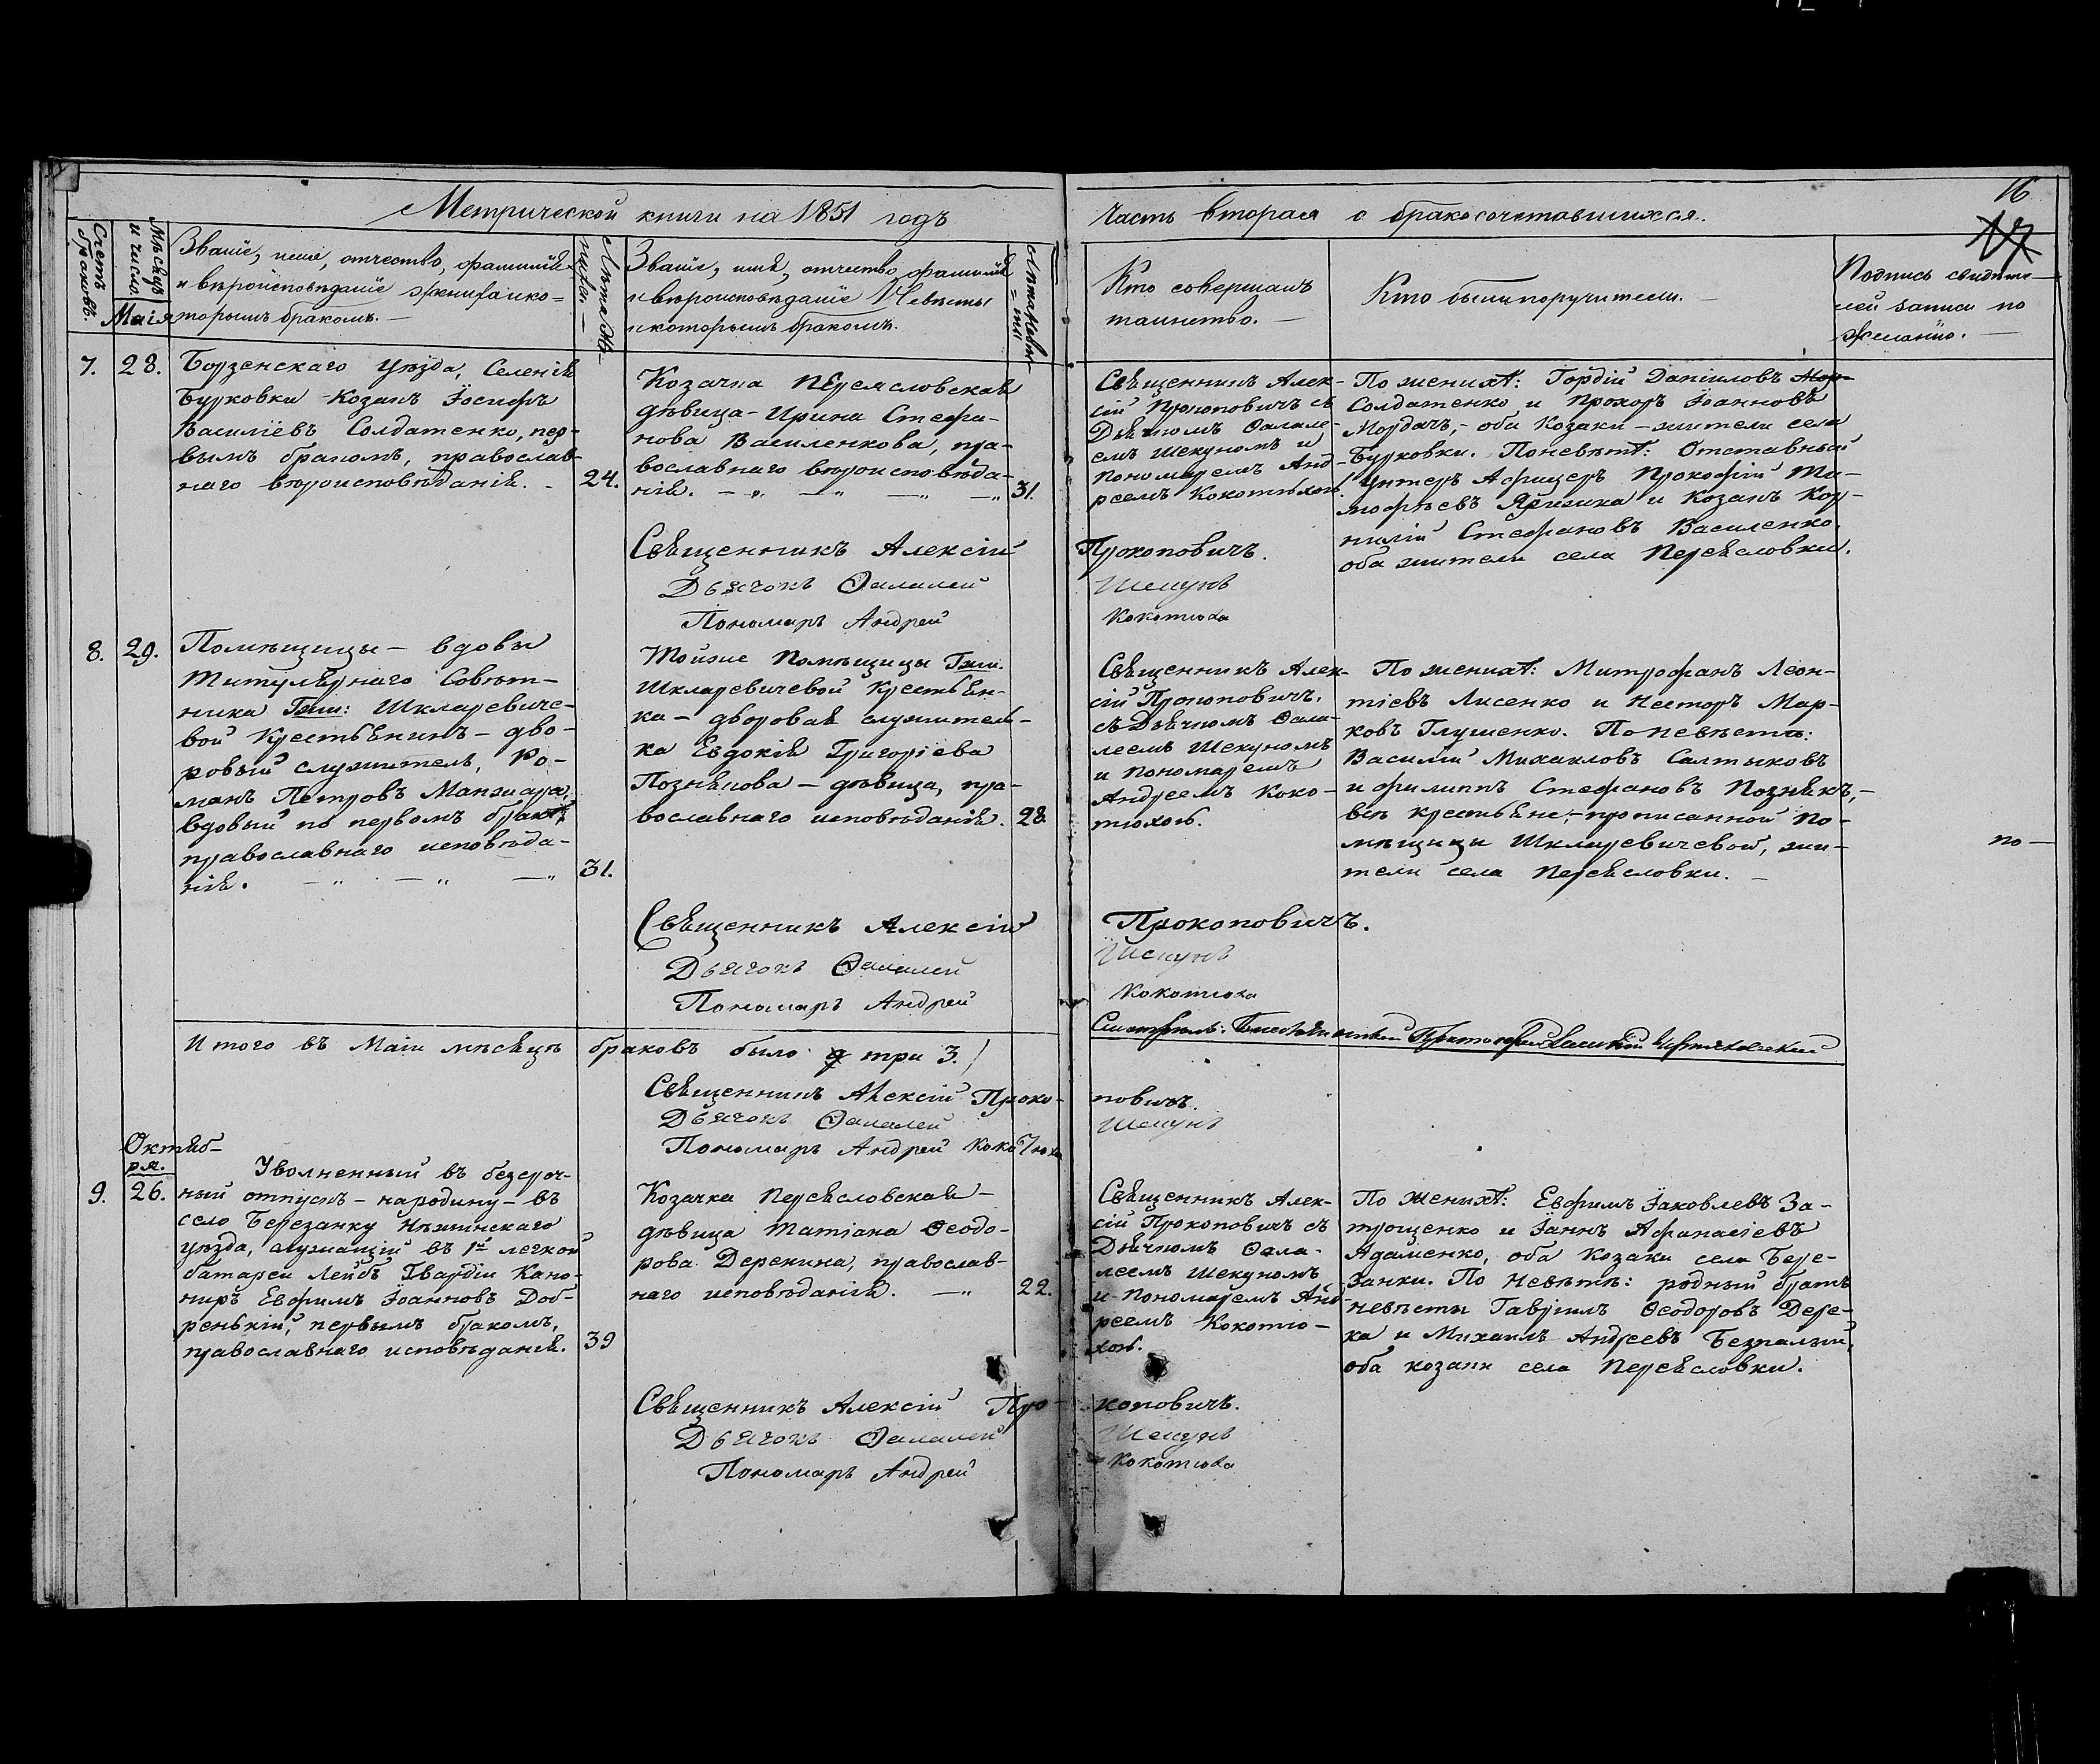 16
17
Метрической книги на 1851 годъ
Часть вторая о бракосочетавшихся.
Счетъ браковъ.
Мѣсяцъ и число.
Маія
Званіе, имя, отчество, фамилія
и вѣроисповѣданіе жениха и ко=
торымъ бракомъ. —
Лѣта же-
ниховъ. —
Званіе, имя, отчество, фамилія
и вѣроисповѣданіе Невѣсты
и которымъ бракомъ.
Лѣта невѣ=
сты
Кто совершалъ
таинство. —
Кто были поручители. —
Подпись свидѣте-
лей записи по
желанію. —
7.
28.
Борзенскаго уѣзда, Селенія
Бурковки Козакъ Іосифъ
Василіевъ Солдатенко, пер-
вымъ бракомъ, православ-
наго вѣроисповѣданія. -
24.
Козачка Переясловская
дѣвица - Ирина Стефа-
нова Василенкова, пра-
вославнаго вѣроисповѣда-
нія. — „ — „ — „ — „
31.
Священникъ Алек-
сій Прокоповичъ съ
Дьячкомъ Фалале-
емъ Шекуномъ и
Пономаремъ Анд-
реемъ Кокотюхою.
По женихѣ: Гордій Даніиловъ Мор-
Солдатенко и Прохоръ Іоанновъ
Мордачъ, - оба Козаки - жители села
Бурковки. По невѣстѣ: Отставный
Унтеръ Афицеръ Прокофій Ти-
мофѣевъ Ярижка и Козакъ Кор-
нилій Стефановъ Василенко,
оба жители села Переясловки.
Священникъ Алексій Прокоповичъ.
Дьячокъ Фалалей Шекунъ
Пономарь Андрей Кокотюха
8.
29.
Помѣщицы — вдовы
Титулярнаго Совѣт-
ника Гжи: Шкляревиче-
вой Крестьянинъ - дво-
ровый служитель, Ро-
манъ Петровъ Манжара,
вдовый по первомъ бракѣ,
православнаго исповѣда-
нія. — „ — „ — „
31.
Тойже Помѣщицы Гжи.
Шкляревичевой Крестьян-
ка - дворовая служитель-
ка Евдокія Григоріева
Познякова — дѣвица, пра-
вославнаго исповѣданія.
28.
Священникъ Алек-
сій Прокоповичъ,
съ Дьячкомъ Фала-
леемъ Шекуномъ
и Пономаремъ
Андреемъ Коко-
тюхою.
По женихѣ: Митрофанъ Леон-
тіевъ Лисенко и Несторъ Мар-
ковъ Глушенко. По невѣстѣ:
Василій Михаиловъ Салтыковъ
и Филиппъ Стефановъ Познякъ, -
всѣ крестьяне, - прописанной По-
мѣщицы Шкляревичевой, жи-
тели села Переясловки. —
по —
Священникъ Алексій Прокоповичъ.
Дьячокъ Фалалей Шекунъ
Пономарь Андрей Кокотюха
Смотрѣлъ:
Итого въ Маіи мѣсяцѣ браковъ было три 3.
Священникъ Алексій Проко- повичъ.
Дьячокъ Фалалей Шекунъ
Пономарь Андрей Кокотюха
Октяб-
ря.
9.
26.
Уволненный въ безсроч-
ный отпускъ - народину - въ
село Березанку Нѣжинскаго
уѣзда, служащій въ 1й легкой
батареи Лейбъ Гвардіи Кано-
ниръ Евфимъ Іоанновъ Доб-
ренькій, первымъ бракомъ,
православнаго исповѣданія.
39
Козачка Переясловская —
дѣвица Татіана Феодо-
рова Дерекина, православ-
наго исповѣданія. — „
22.
Священникъ Алек-
сій Прокоповичъ съ
Дьячкомъ Фала-
леемъ Шекуномъ
и Пономаремъ Анд-
реемъ Кокотю-
хою.
По женихѣ: Евфимъ Іаковлевъ За-
трощенко и Іаннъ Афанасіевъ
Адаменко, оба Козаки села Бере-
занки. По Невѣстѣ: родный братъ
невѣсты Гавріилъ Феодоровъ Дере-
ка и Михаилъ Андреевъ Безпалый,
оба козаки села Переясловки.
Священникъ Алексій Про- коповичъ.
Дьячокъ Фалалей Шекунъ
Пономарь Андрей Кокотюха